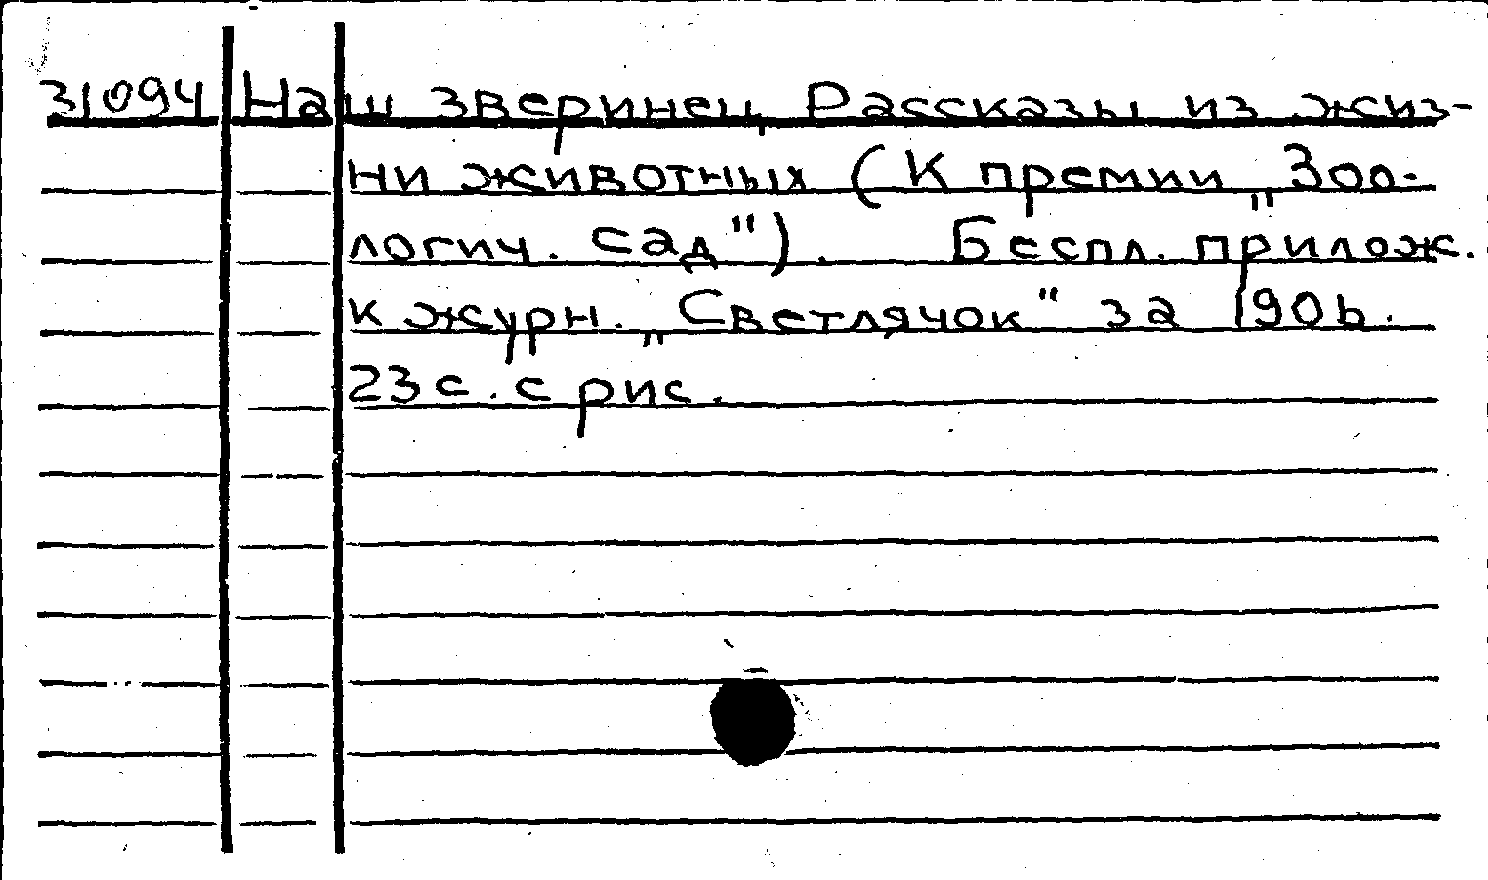 31094 Наш зверинец. Рассказы из жиз-
ни животных (К премии „Зоо-
логич. сад"). Беспл. прилож.
к журн. „Светлячок" за 1906.
23 с. с рис.